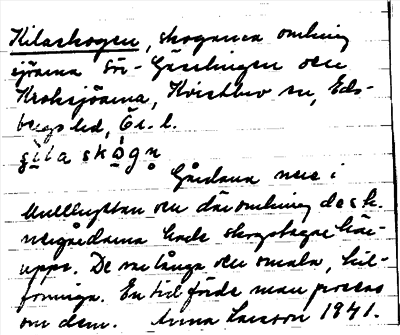 Kilaskogen, skogarna omkring
sjöarna Sör-Gäselingen och
Kroksjöarna, Kvistbro sn, Eds-
bergs hd, Ör. l.
Gårdarna nere i
Mullhyttan och däromkring de s.k.
nergårdarna hade skogslagar här-
uppe. De va långa och smala, kil-
formiga. En tid förde man process
om dem. Anna Larsson 1941.